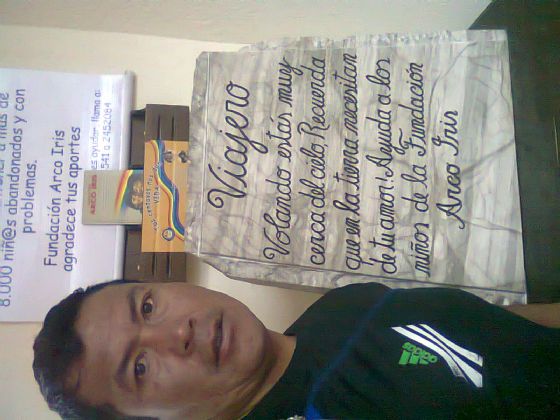 8.000 niñ@s abandonados y con
problemas.
Fundación Arco Iris
agradece tus aportes
ayudar llama a:
2452084
ARCO IRIS
Viajero
Volando estás muy
cerca del cielo, Recuerda
que en la tierra necesitan
de tu amor. Ayuda a los
niños de la Fundación
Arco Iris
adidas